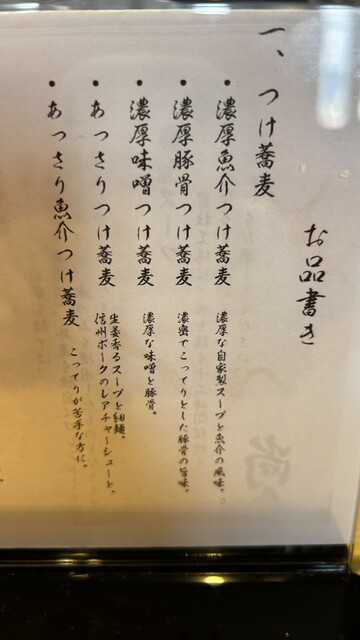 お品書き
一、つけ蕎麦
・濃厚魚介つけ蕎麦
濃厚な自家製スープと魚介の風味。
・濃厚豚骨つけ蕎麦
濃密でこってりとした豚骨の旨味。
・濃厚味噌つけ蕎麦
濃厚な味噌と豚骨。
・あっさりつけ蕎麦
生姜香るスープと細麺。
信州ポークのレアチャーシューと。
・あっさり魚介つけ蕎麦
こってりが苦手な方に。